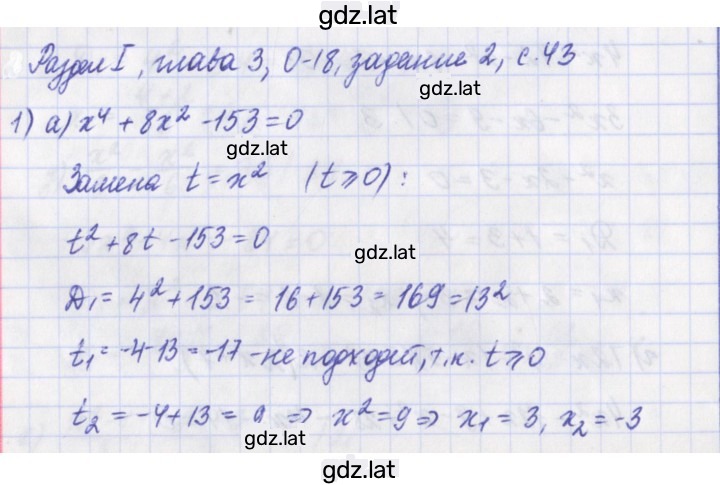 gdz.lat
Раздел I, глава 3, О-18, задание 2, с.43
gdz.lat
1) а) x⁴ + 8x² - 153 = 0
gdz.lat
Замена t = x² (t ⩾ 0):
t² + 8t - 153 = 0
gdz.lat
D₁ = 4² + 153 = 16 + 153 = 169 = 13²
gdz.lat
t₁ = -4-13 = -17 - не подходит, т.к. t ⩾ 0
t₂ = -4+13 = 9 ⇒ x² = 9 ⇒ x₁ = 3, x₂ = -3
gdz.lat
gdz.lat